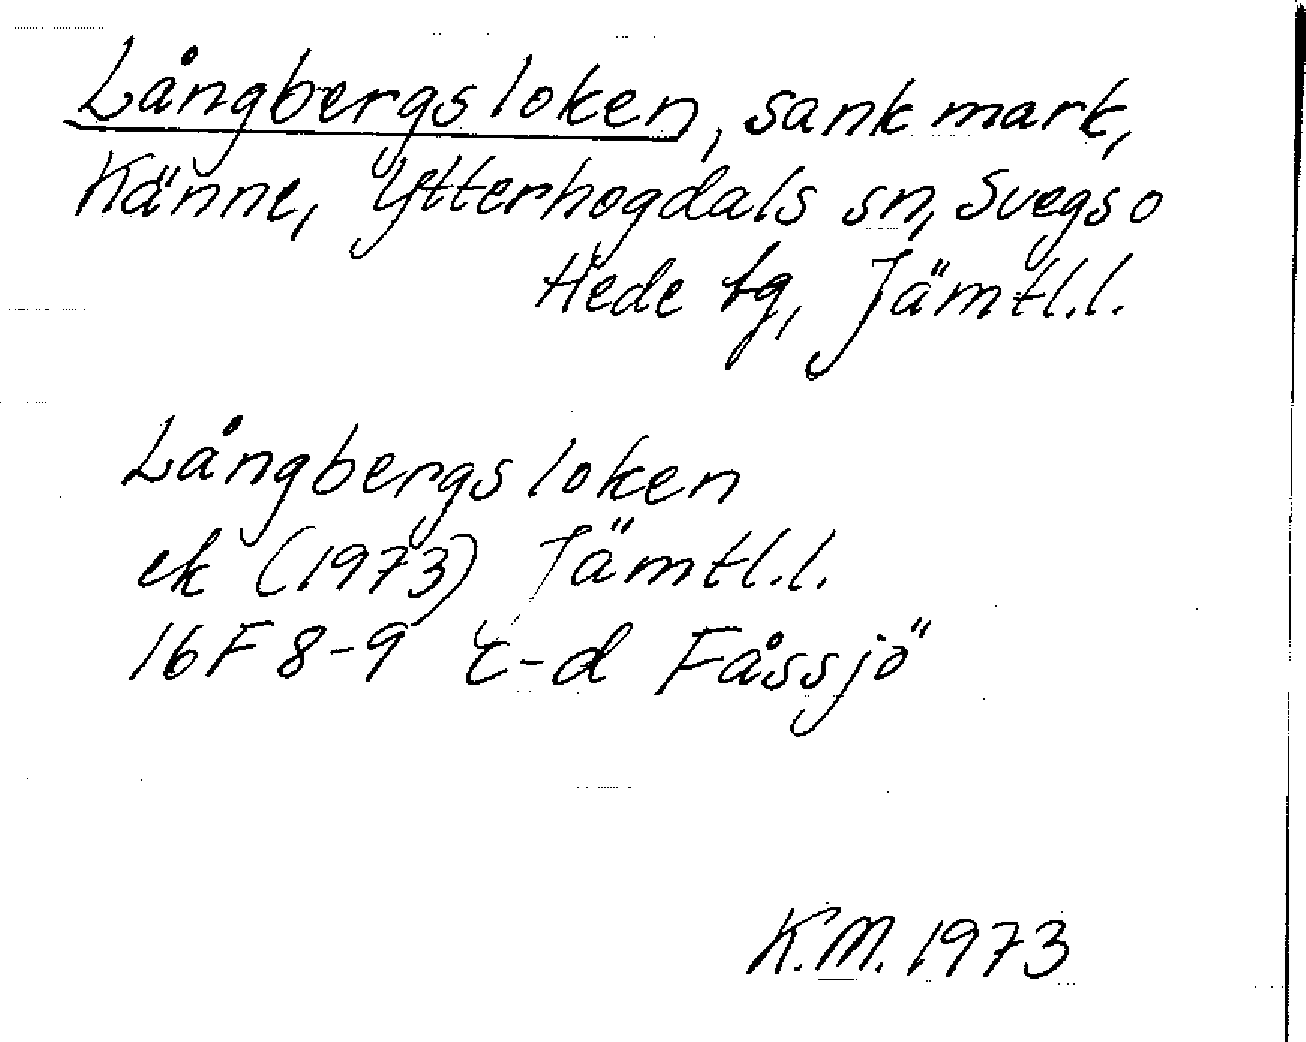 Långbergsloken, sank mark,
Känne, Ytterhogdals sn, Svegs o
Hede tg, Jämtl.l.
Långbergsloken
ek (1973) Jämtl.l.
16F 8-9 c-d Fåssjö
K.M. 1973